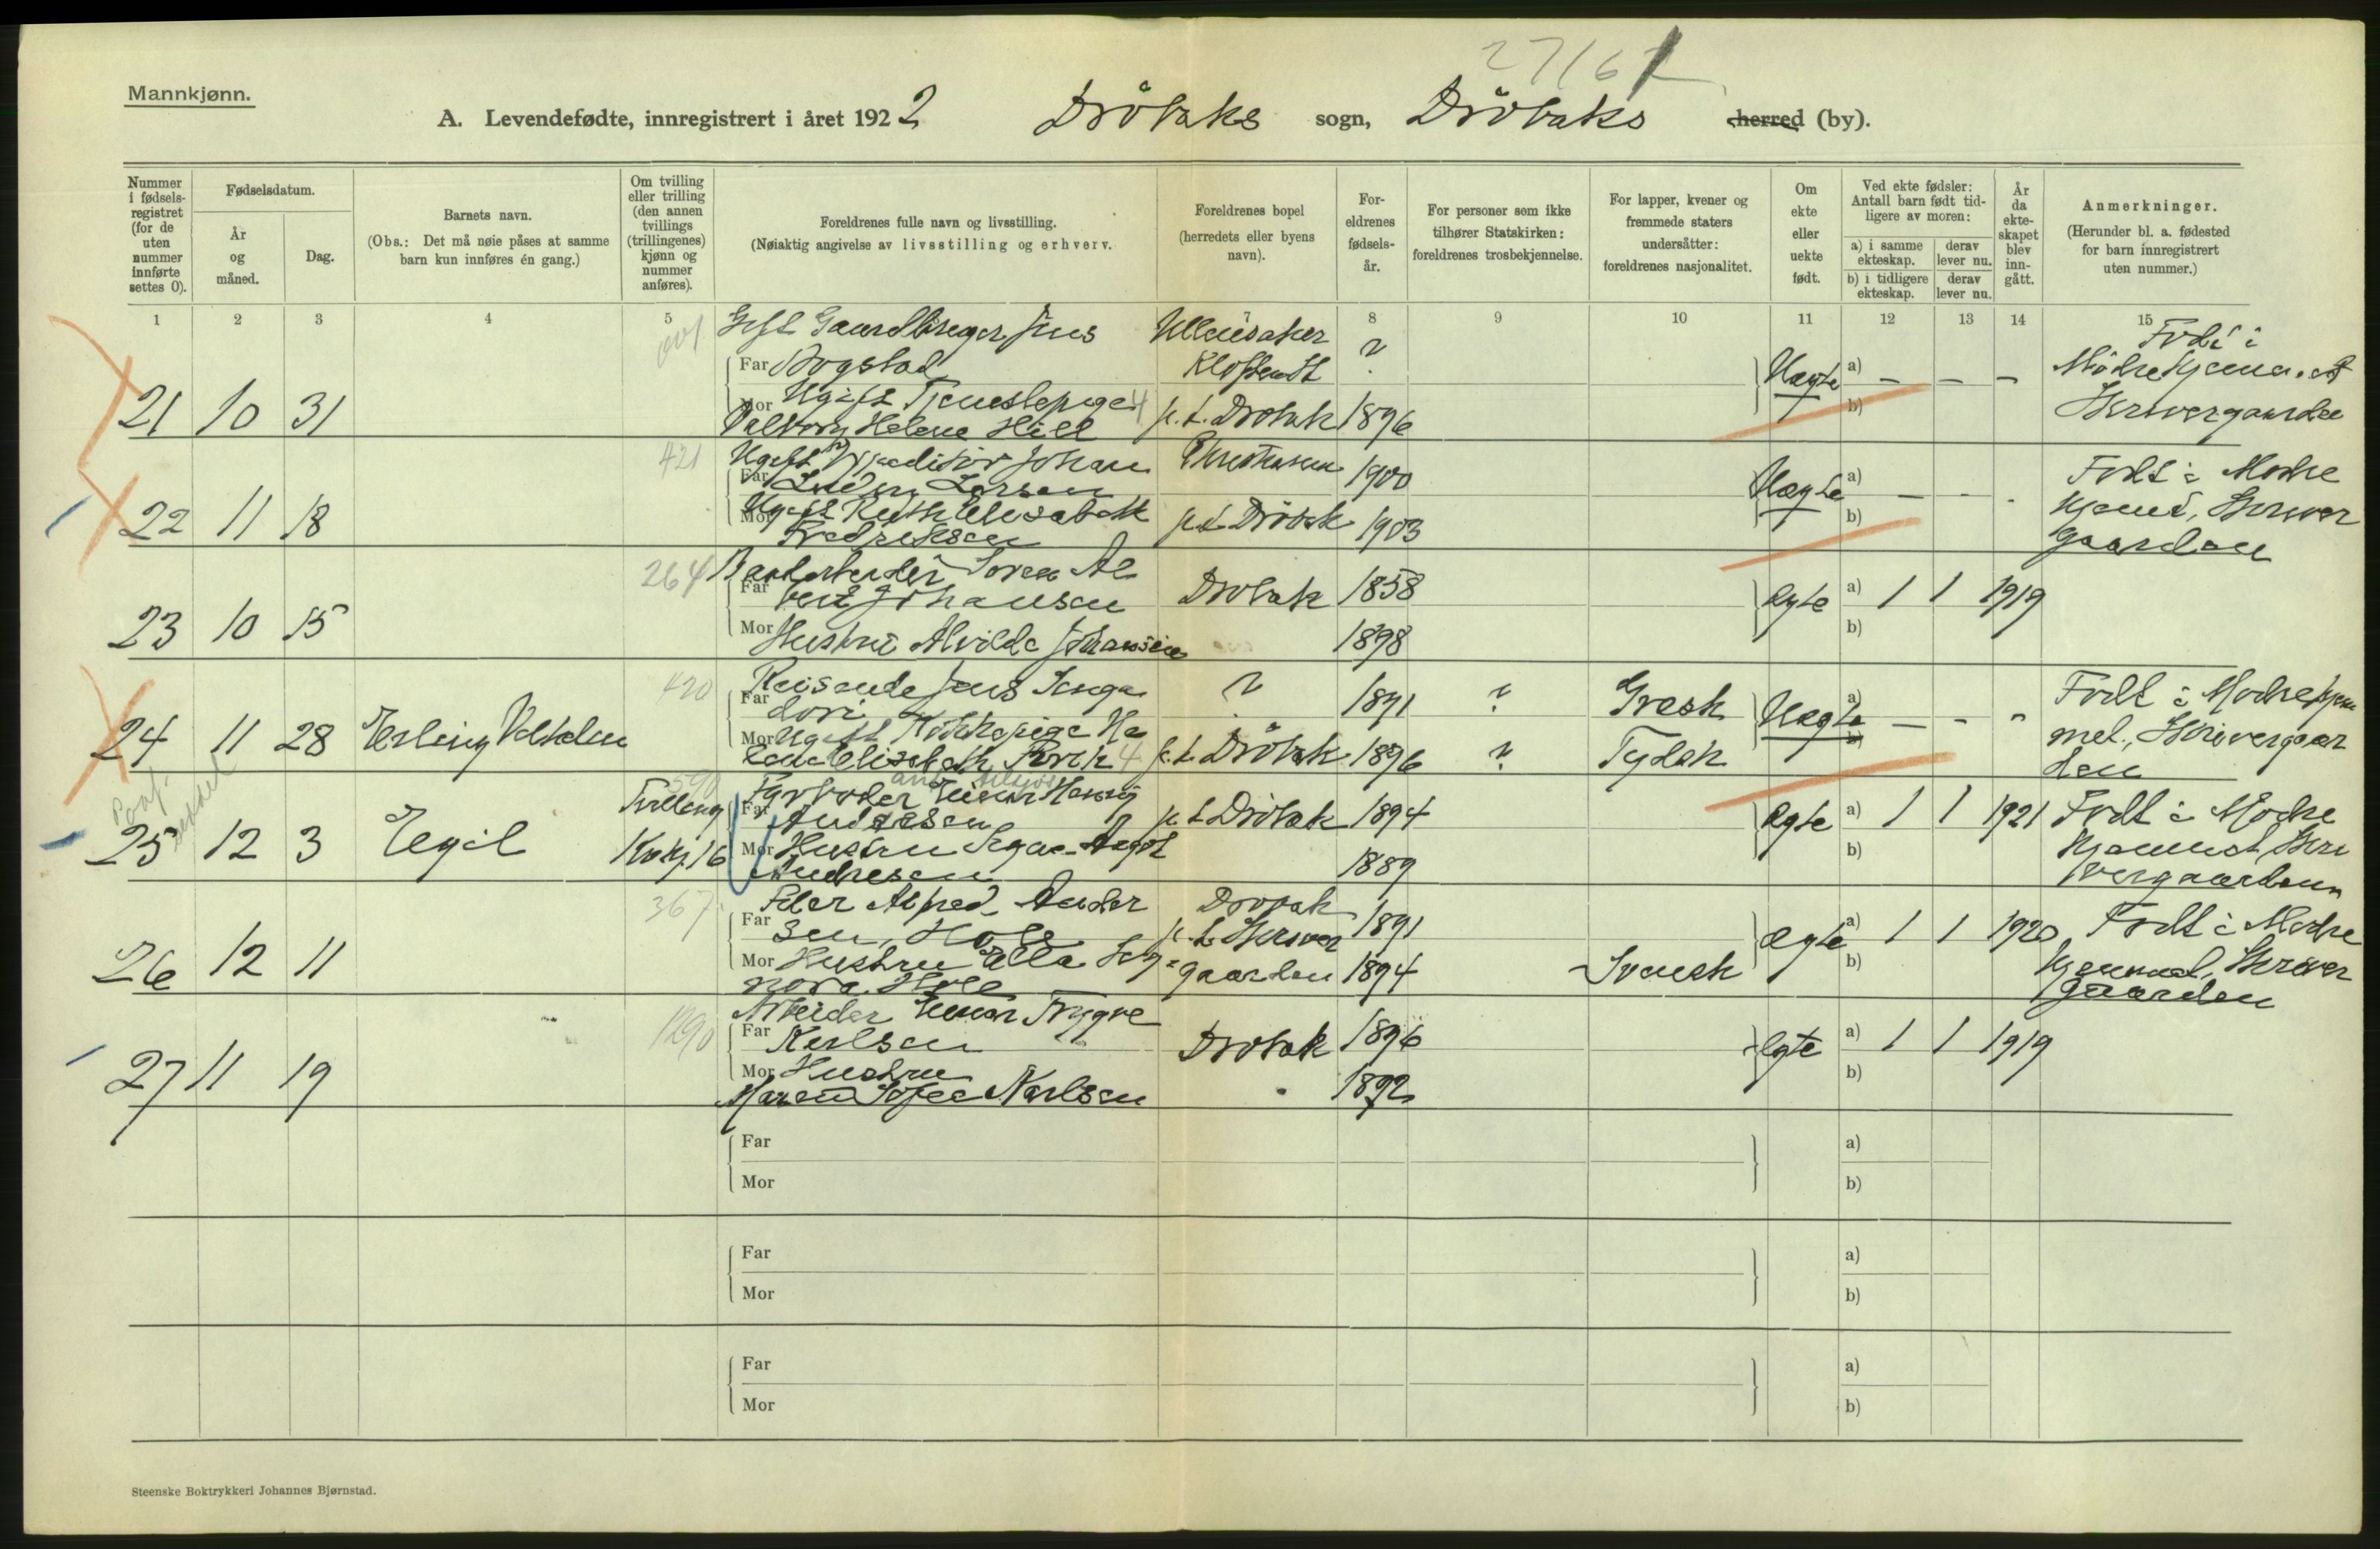 27/6
Mannkjønn.
A. Levendefødte, innregistrert i året 1922 Drøbaks sogn, Drøbaks herred (by).
Nummer i fødselsregistret (for de uten nummer innførte settes 0).
Fødselsdatum.
År og måned.
Dag.
Barnets navn.
(Obs.: Det må nøie påses at samme barn kun innføres én gang.)
Om tvilling eller trilling (den annen tvillings (trillingenes) kjønn og nummer anføres).
Foreldrenes fulle navn og livsstilling.
(Nøiaktig angivelse av livsstilling og erhverv.
Foreldrenes bopel (herredets eller byens navn).
Foreldrenes fødselsår.
For personer som ikke tilhører Statskirken: foreldrenes trosbekjennelse.
For lapper, kvener og fremmede staters undersåtter: foreldrenes nasjonalitet.
Om ekte eller uekte født.
Ved ekte fødsler: Antall barn født tidligere av moren:
a) i samme ekteskap.
derav lever nu.
b) i tidligere ekteskap.
derav lever nu.
År da ekteskapet blev inngått.
Anmerkninger.
(Herunder bl. a. fødested for barn innregistrert uten nummer.)
1 2 3 4 5 7 8 9 10 11 12 13 14 15
21 10 31
Gift Gaardbruger Jens
Far Bogstad
Ullensaker
?
Mor Ugift Tjenestepige
Valborg Helene Hill
p.t. Drøbak 1896
Uægte a) – – –
b)
Født i
Mødrehjemmet
Skrivergaarden
22 11 18
421
Ugift Expeditør Johan
Far Ludvig Larsen
1900
Mor Ugift Ruth Elisabeth
Fredriksen
p.t. Drøbak 1903
Uægte a) – – -
b)
Født i Mødre
hjemmet, Skriver
gaarden
23 10 15
264
Søren Al
Far bert Johansen
Drøbak 1858
Mor Hustru Alvilde Johansen
1898
Ægte a) 1 1 1919
b)
24 11 28 Erling Volhelm
420
Reisende Jens
Far
? 1891 ? Græsk
Mor Ugift Kokkepige He
lene Elisabeth
p.t. Drøbak 1896 ? Tydsk
Uægte a) – - -
b)
Født i Mødrehjem
met, Skrivergaar
den
25 12 3 Egil
Tvilling
Kvkj. 16
590
Fyrbøder Einar Henry
Far Andresen
p.t. Drøbak 1894
Mor Hustru Signe Aagot
Andresen
1889
Ægte a) 1 1 1921
b)
Født i Mødre
hjemmet, Skri
vergaarden
26 12 11
367
Peder Alfred Ander
Far sen, Holt
Drøbak 1891
p.t. Skriver
Mor Hustru Ella
nora Holt
gaarden 1894
Svensk
Ægte a) 1 1 1920
b)
Født i Mødre
hjemmet, Skriver
gaarden
27 11 19
1290
Arbeider Einar Trygve
Far Karlsen
Drøbak 1896
Mor Hustru
Maren Sofie Karlsen
1892
Ægte a) 1 1 1919
b)
Far a)
Mor b)
Far a)
Mor b)
Far a)
Mor b)
Steenske Boktrykkeri Johannes Bjørnstad.